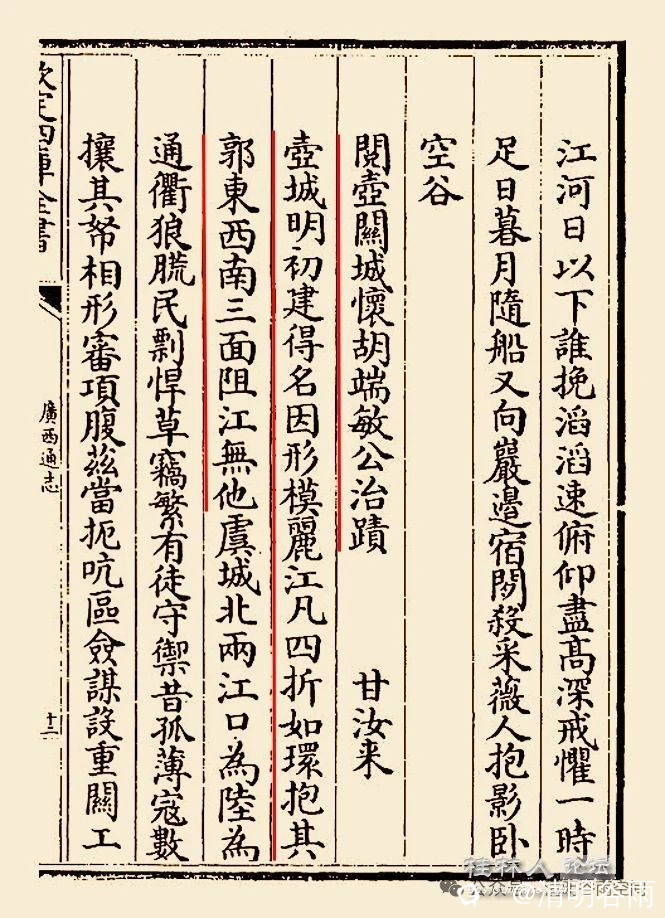 江河日以下誰挽滔滔速俯仰盡高深戒懼一時
足日暮月隨船又向巖邉宿閉殺采薇人抱影卧
空谷
閱壺關城懷胡端敏公治蹟　甘汝来
壺城明初建得名因形模麗江凡四折如環抱其
郭東西南三面阻江無他虞城北兩江口為陸為
通衢狼㡃民剽悍草竊繁有徒守禦昔孤薄寇數
攘其帑相形審項腹茲當扼吭區僉謀設重關工
欽定四庫全書
廣西通志
十二
桂林人论坛
清明谷雨